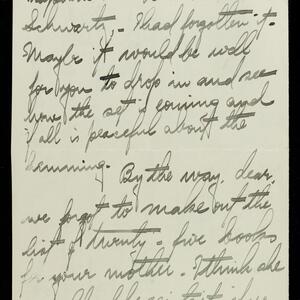 Schwartz,. I had forgotten it.
Maybe it would be well
for you to drop in and see
how the set is coming and
if all is peaceful about the
hemming. By the way, dear,
we forgot to make out the
list of twenty-five books
for your mother. I think she